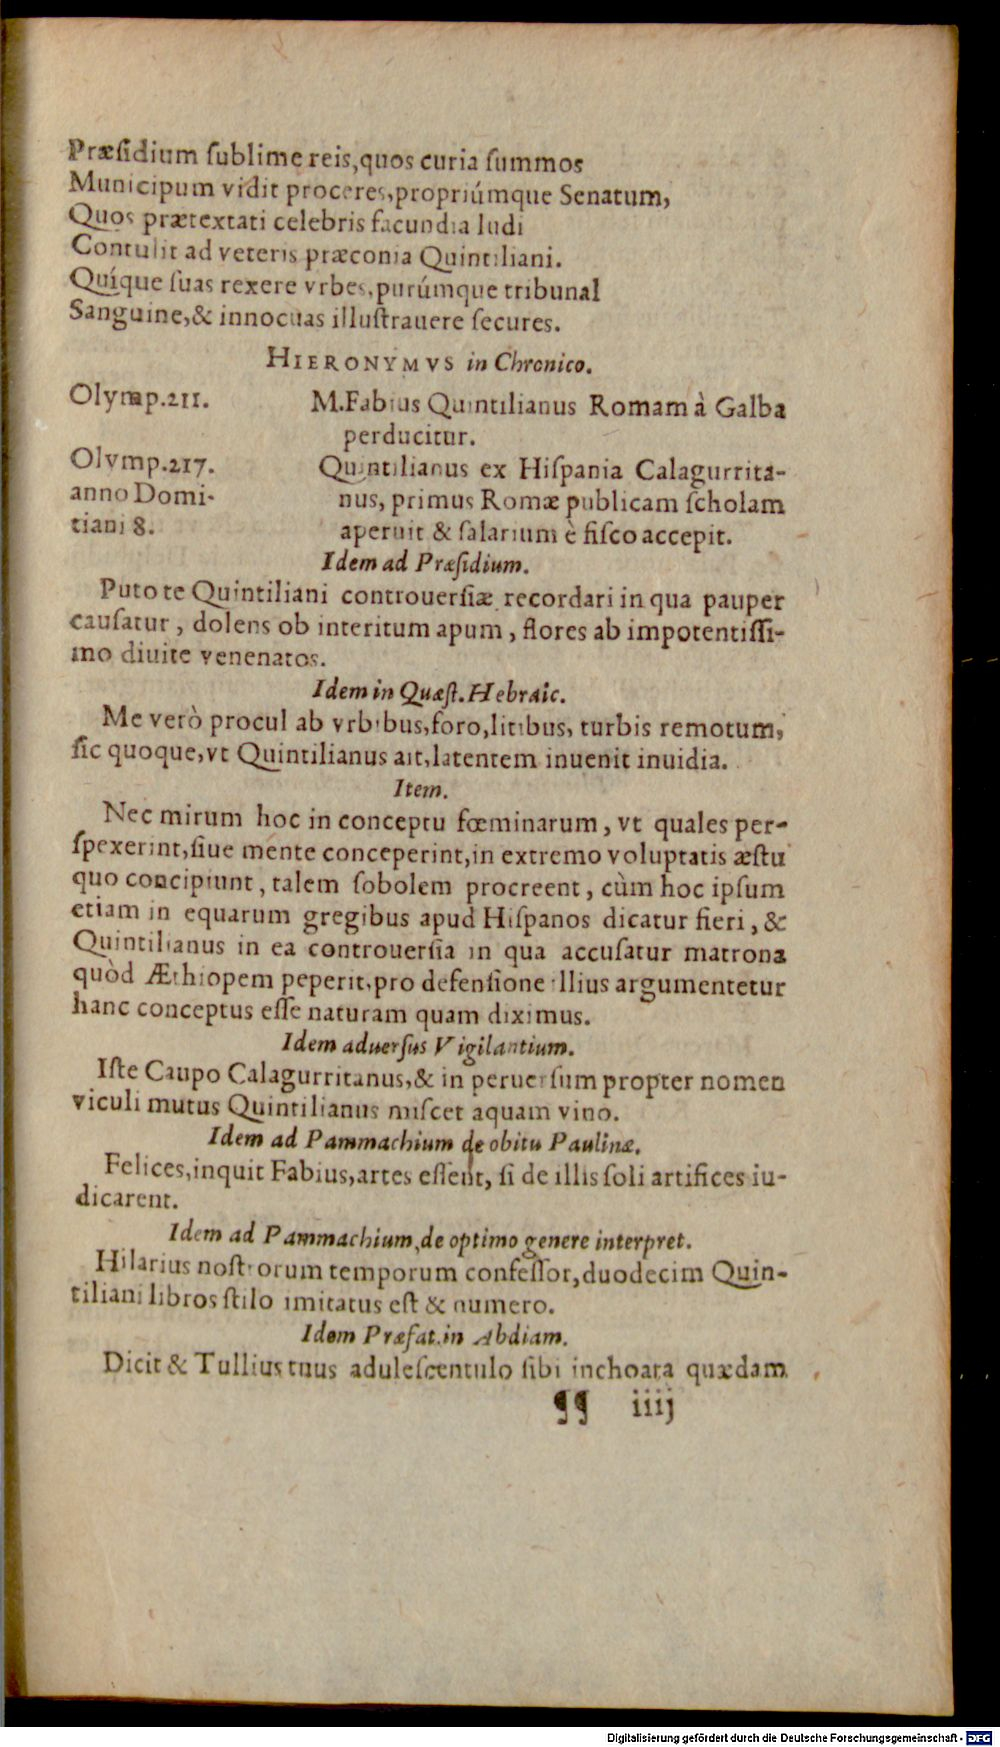 Præſidium ſublime reis,quos curia ſummos
Municipum vidit proceres,propriúmque Senatum,
Quos prætextati celebris facundia ludi
Contulit ad veteris præconia Quintiliani.
Quíque ſuas rexere vrbes,purúmque tribunal
Sanguine,& innocuas illuſtrauere ſecures.
HIERONYMVS in Chronico.
Olymp.211. M.Fabius Quintilianus Romam à Galba
perducitur.
Olymp.217. Quintilianus ex Hiſpania Calagurrita-
anno Domi- nus, primus Romæ publicam ſcholam
tiani 8. aperuit & ſalarium è fiſco accepit.
Idem ad Præſidium.
Puto te Quintiliani controuerſiæ recordari in qua pauper
cauſatur, dolens ob interitum apum, flores ab impotentiſſi-
mo diuite venenatos.
Idem in Quæſt. Hebraic.
Me verò procul ab vrbibus,foro,litibus, turbis remotum,
ſic quoque,vt Quintilianus ait,latentem inuenit inuidia.
Item.
Nec mirum hoc in conceptu fœminarum, vt quales per-
ſpexerint,ſiue mente conceperint,in extremo voluptatis æſtu
quo concipiunt, talem ſobolem procreent, cùm hoc ipſum
etiam in equarum gregibus apud Hiſpanos dicatur fieri, &
Quintilianus in ea controuerſia in qua accuſatur matrona
quòd Æthiopem peperit,pro defenſione illius argumentetur
hanc conceptus eſſe naturam quam diximus.
Idem aduerſus Vigilantium.
Iſte Caupo Calagurritanus,& in peruerſum propter nomen
viculi mutus Quintilianus miſcet aquam vino.
Idem ad Pammachium de obitu Paulinæ.
Felices,inquit Fabius,artes eſſent, ſi de illis ſoli artifices iu-
dicarent.
Idem ad Pammachium,de optimo genere interpret.
Hilarius noſtrorum temporum confeſſor,duodecim Quin-
tiliani libros ſtilo imitatus eſt & numero.
Idem Præfat.in Abdiam.
Dicit & Tullius tuus aduleſcentulo ſibi inchoata quædam
¶¶ iiij
Digitalisierung gefördert durch die Deutsche Forschungsgemeinschaft - DFG